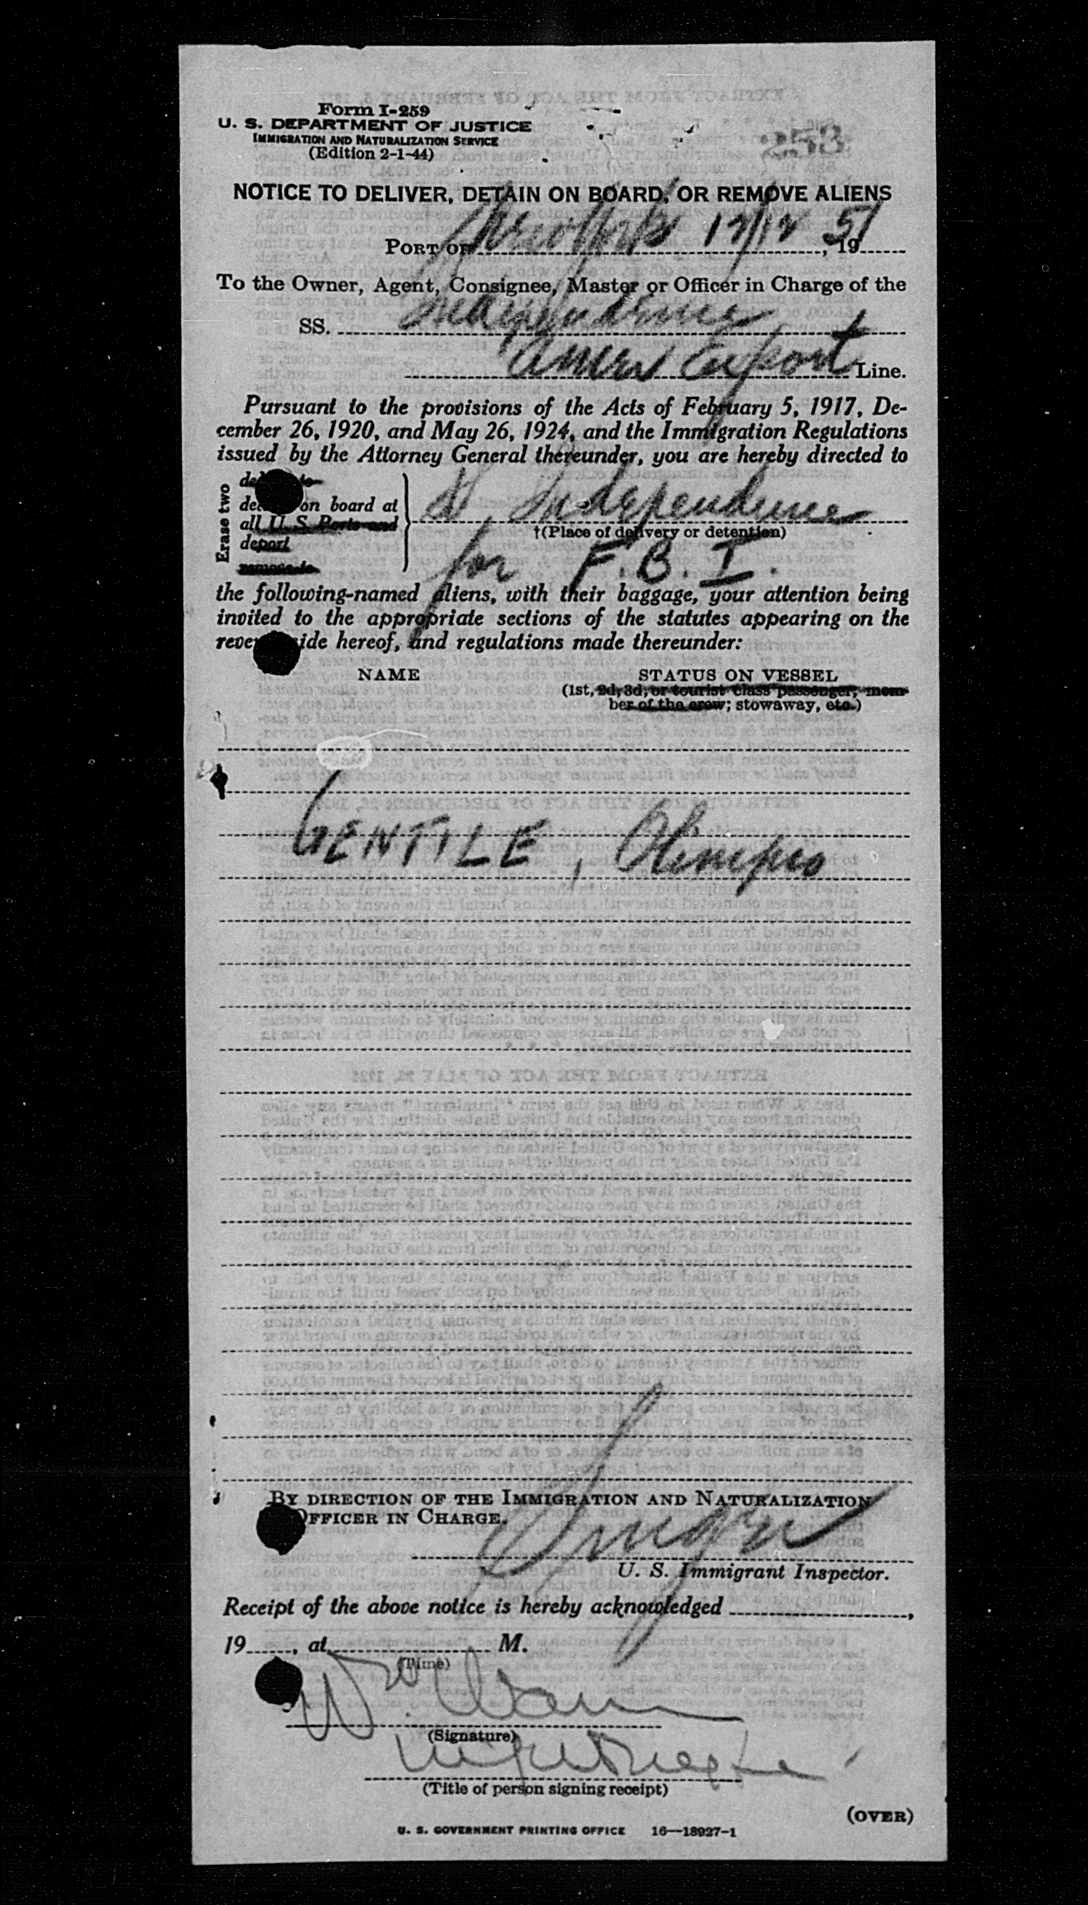 Form I-259
U. S. DEPARTMENT OF JUSTICE
IMMIGRATION AND NATURALIZATION SERVICE
(Edition 2-1-44)
253
NOTICE TO DELIVER, DETAIN ON BOARD, OR REMOVE ALIENS
PORT OF New York 12/12, 1951
To the Owner, Agent, Consignee, Master or Officer in Charge of the
SS. Independence
Amer Export Line.
Pursuant to the provisions of the Acts of February 5, 1917, De-
cember 26, 1920, and May 26, 1924, and the Immigration Regulations
issued by the Attorney General thereunder, you are hereby directed to
Erase two
on board at
all U. S. Ports and
deport
remove to
Independence
†(Place of delivery or detention)
for F. B. I.
the following-named aliens, with their baggage, your attention being
invited to the appropriate sections of the statutes appearing on the
reverse side hereof, and regulations made thereunder:
NAME STATUS ON VESSEL
(1st, 2d, 3d, or tourist class passenger; mem-
ber of the crew; stowaway, etc.)
GENTILE, Olimpio
BY DIRECTION OF THE IMMIGRATION AND NATURALIZATION
OFFICER IN CHARGE.
U. S. Immigrant Inspector.
Receipt of the above notice is hereby acknowledged ,
19 , at M.
(Time)
Wm.
(Signature)
(Title of person signing receipt)
(OVER)
U. S. GOVERNMENT PRINTING OFFICE 16—18927-1